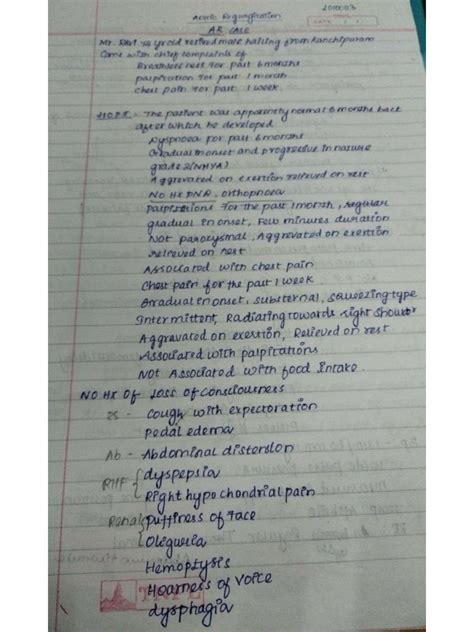 Aortic Regurgitation
AR case
DATE
Mr. Ravi 54 yr old retired male hailing from Kanchipuram
Came with chief complaints of
Breathlessness for past 6 months
palpitation for past 1 month
chest pain for past 1 week.
HOPI - The patient was apparently normal 6 months back
after which he developed
Dyspnoea for past 6 months
Gradual in onset and progressive in nature
grade 2 (NHYA)
Aggrevated on exertion relieved on rest
NO HX PND, orthopnoea
palpitations for the past 1 month, regular
gradual in onset, Few minutes duration
Not paroxysmal, Aggrevated on exertion
relieved on rest
Associated with chest pain
Chest pain for the past 1 week
Gradual in onset, substernal, squeezing type
Intermittent, Radiating towards right shoulder
Aggravated on exertion, Relieved on rest
Associated with palpitations
Not Associated with food intake.
NO HX OF Loss of consciousness
Cough with expectoration
Pedal edema
Ab - Abdominal distension
RHF dyspepsia
Right hypochondrial pain
Renal puffiness of Face
Oleguria
Hemoptysis
Hoarness of voice
dysphagia